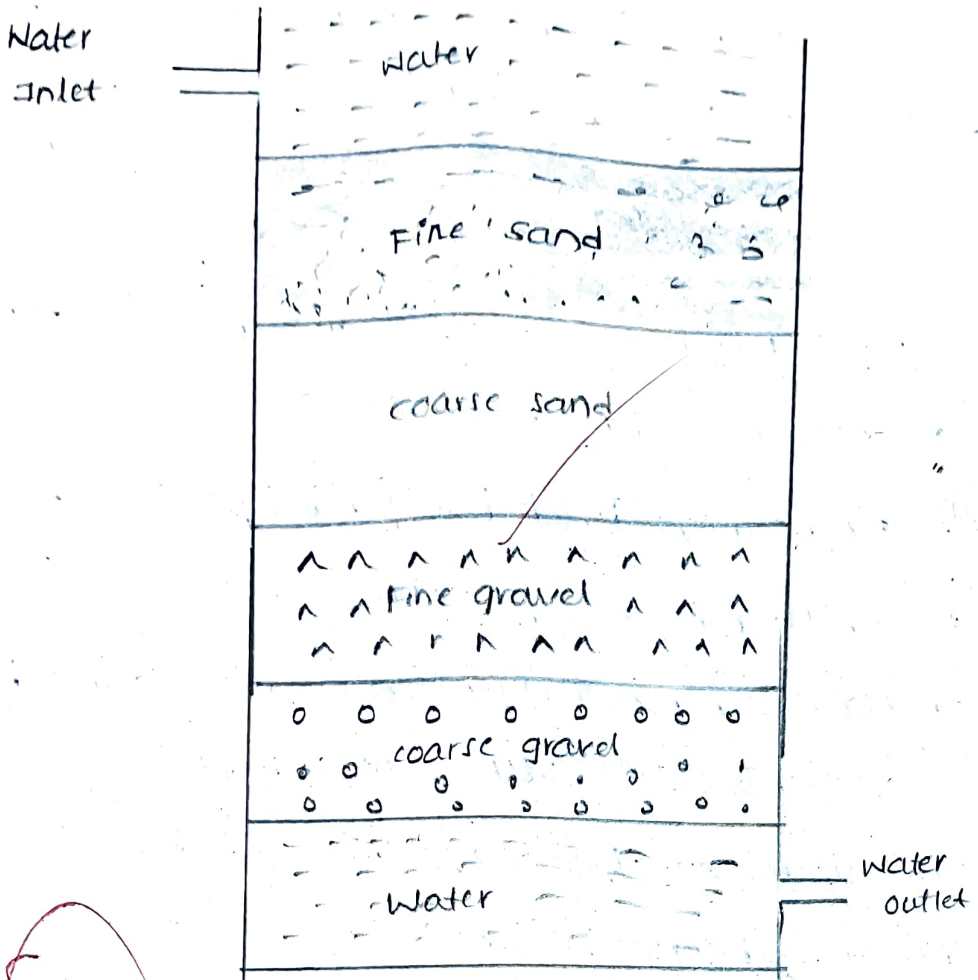 Water
Inlet
water
Fine sand
coarse sand
Fine gravel
coarse gravel
Water
Water
outlet